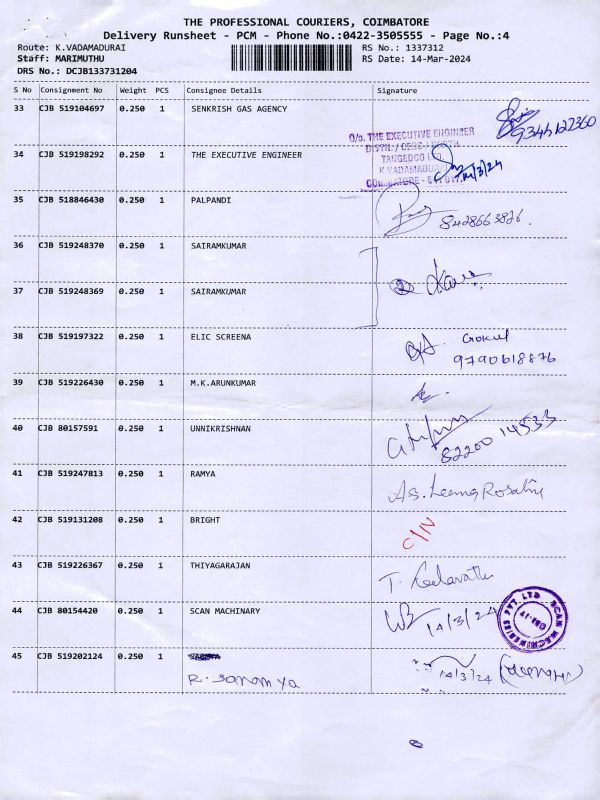 THE PROFESSIONAL COURIERS, COIMBATORE
Delivery Runsheet - PCM - Phone No.:0422-3505555 - Page No.:4
Route: K.VADAMADURAI RS No.: 1337312
Staff: MARIMUTHU RS Date: 14-Mar-2024
DRS No.: DCJB133731204
S No Consignment No Weight PCS Consignee Details Signature
33 CJB 519104697 0.250 1 SENKRISH GAS AGENCY
9344122360
O/o. THE EXECUTIVE ENGINEER
34 CJB 519198292 0.250 1 THE EXECUTIVE ENGINEER
TANGEDCO LTD.
K VADAMADURAI
14/3/24
35 CJB 518846430 0.250 1 PALPANDI
8428663826
36 CJB 519248370 0.250 1 SAIRAMKUMAR
37 CJB 519248369 0.250 1 SAIRAMKUMAR
38 CJB 519197322 0.250 1 ELIC SCREENA Gokul
9790618876
39 CJB 519226430 0.250 1 M.K.ARUNKUMAR
40 CJB 80157591 0.250 1 UNNIKRISHNAN
82200 14533
41 CJB 519247813 0.250 1 RAMYA
42 CJB 519131208 0.250 1 BRIGHT C/N
43 CJB 519226367 0.250 1 THIYAGARAJAN
44 CJB 80154420 0.250 1 SCAN MACHINARY 14/3/24
SCAN MACHINERIES PVT. LTD
45 CJB 519202124 0.250 1
R. Saranya 14/3/24